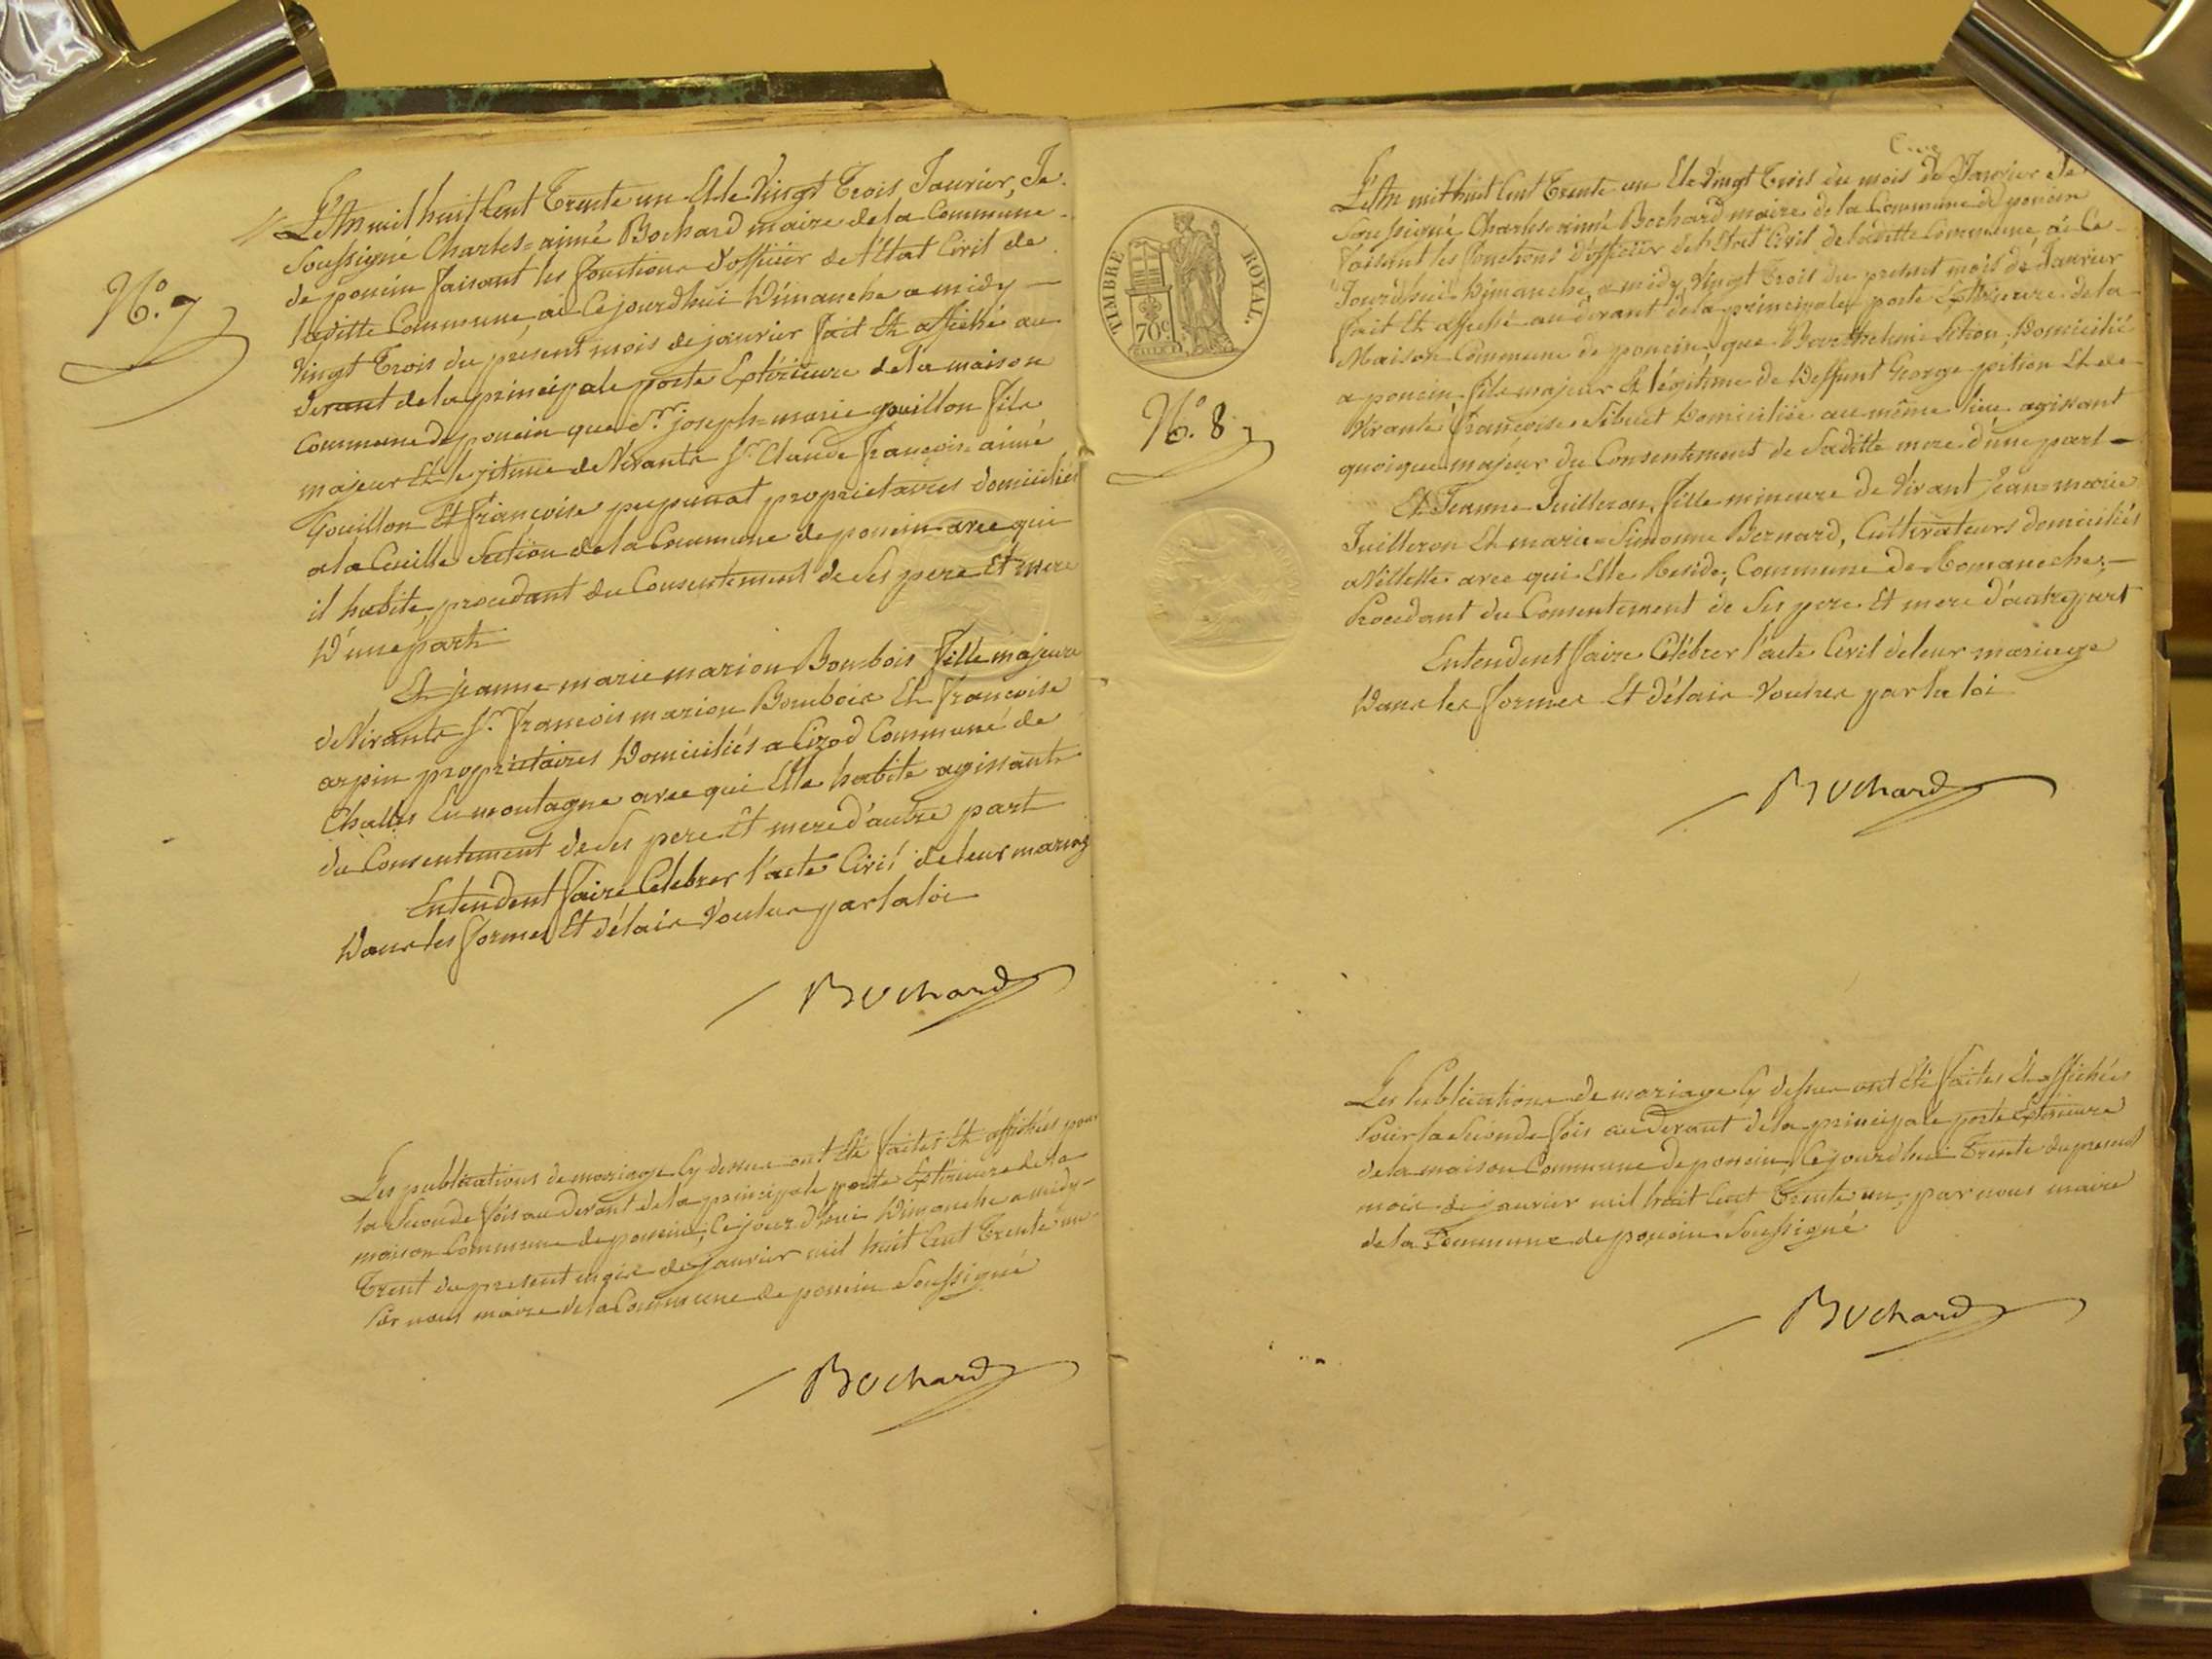 L'An mil huit Cent Trente un Et le Vingt Trois Janvier, Je
Soussigné Charles=aimé Bochard maire de la Commune
de poncin faisant les fonctions d'officier de l'Etat Civil de
laditte Commune, ai Cejourdhui Dimanche a midy
Vingt Trois du présent mois de janvier fait Et affiché au
devant de la principale porte Extérieure de la maison
Commune de poncin que Sr. joseph=marie gouillon fils
majeur Et legitime de Vivants Sr. Claude françois aimé
Gouillon Et françoise propriétaires domiciliés
a la Cueille Section de la Commune de poncin avec qui
il habite, procedant du Consentement de Ses pere Et mere
D'une part
Et jeanne-marie marion Bombois fille majeure
de Vivants Sr. françois marion Bombois Et françoise
arpin propriétaires Domiciliés a Cizod Commune de
Challes La montagne avec qui Elle habite agissante
du Consentement de Ses pere Et mere d'autre part
Entendent faire Celebrer l'acte Civil de leur mariag
Dans les formes Et délais Voulus par la loi
Bochard
Les publications de mariage Cy dessus ont Eté faites Et affichées pour
la Seconde fois au devant de la principale porte Extérieure de la
maison Commune de poncin, Cejourd'hui Dimanche a midy
Trent du présent mois de janvier mil huit Cent Trente un
Par nous maire de la Commune de poncin Soussigné
Bochard
No. 7
TIMBRE ROYAL.
70c.
No. 8
L'An mil huit Cent Trente un Et le Vingt Trois du mois de Janvier Je
Soussigné Charles=aimé Bochard maire de la Commune de poncin
faisant les fonctions d'officier de l'Etat Civil de laditte Commune, ai Ce
Jourdhui Dimanche, a midy Vingt Trois du présent mois de Janvier
fait Et affiché au devant de la principale porte Extérieure de la
Maison Commune de poncin, que Barthelemi Pition, Domicilié
a poncin fils majeur Et légitime de Deffunt George pition Et de
Vivante françoise Sibuet Domiciliée au même lieu agissant
quoique majeur du Consentement de Saditte mere d'une part
Et Jeanne Juilleron, fille mineure de Vivant Jean=marie
Juilleron Et marie=Simonne Bernard, Cultivateurs domiciliés
a Villette avec qui Elle Reside, Commune de Romaneche;
Procedant du Consentement de Ses pere Et mere d'autre part
Entendent faire Célébrer l'acte Civil de leur mariage
Dans les formes Et Délais Voulus par la loi
Bochard
Les Publications de mariage Cy dessus ont Eté faites Et affichées
Pour la Seconde fois au devant de la principale porte Extérieure
de la maison Commune de poncin, Cejourd'hui Trente du présent
mois de janvier mil huit Cent Trente un, par nous maire
de la Commune de poncin Soussigné
Bochard